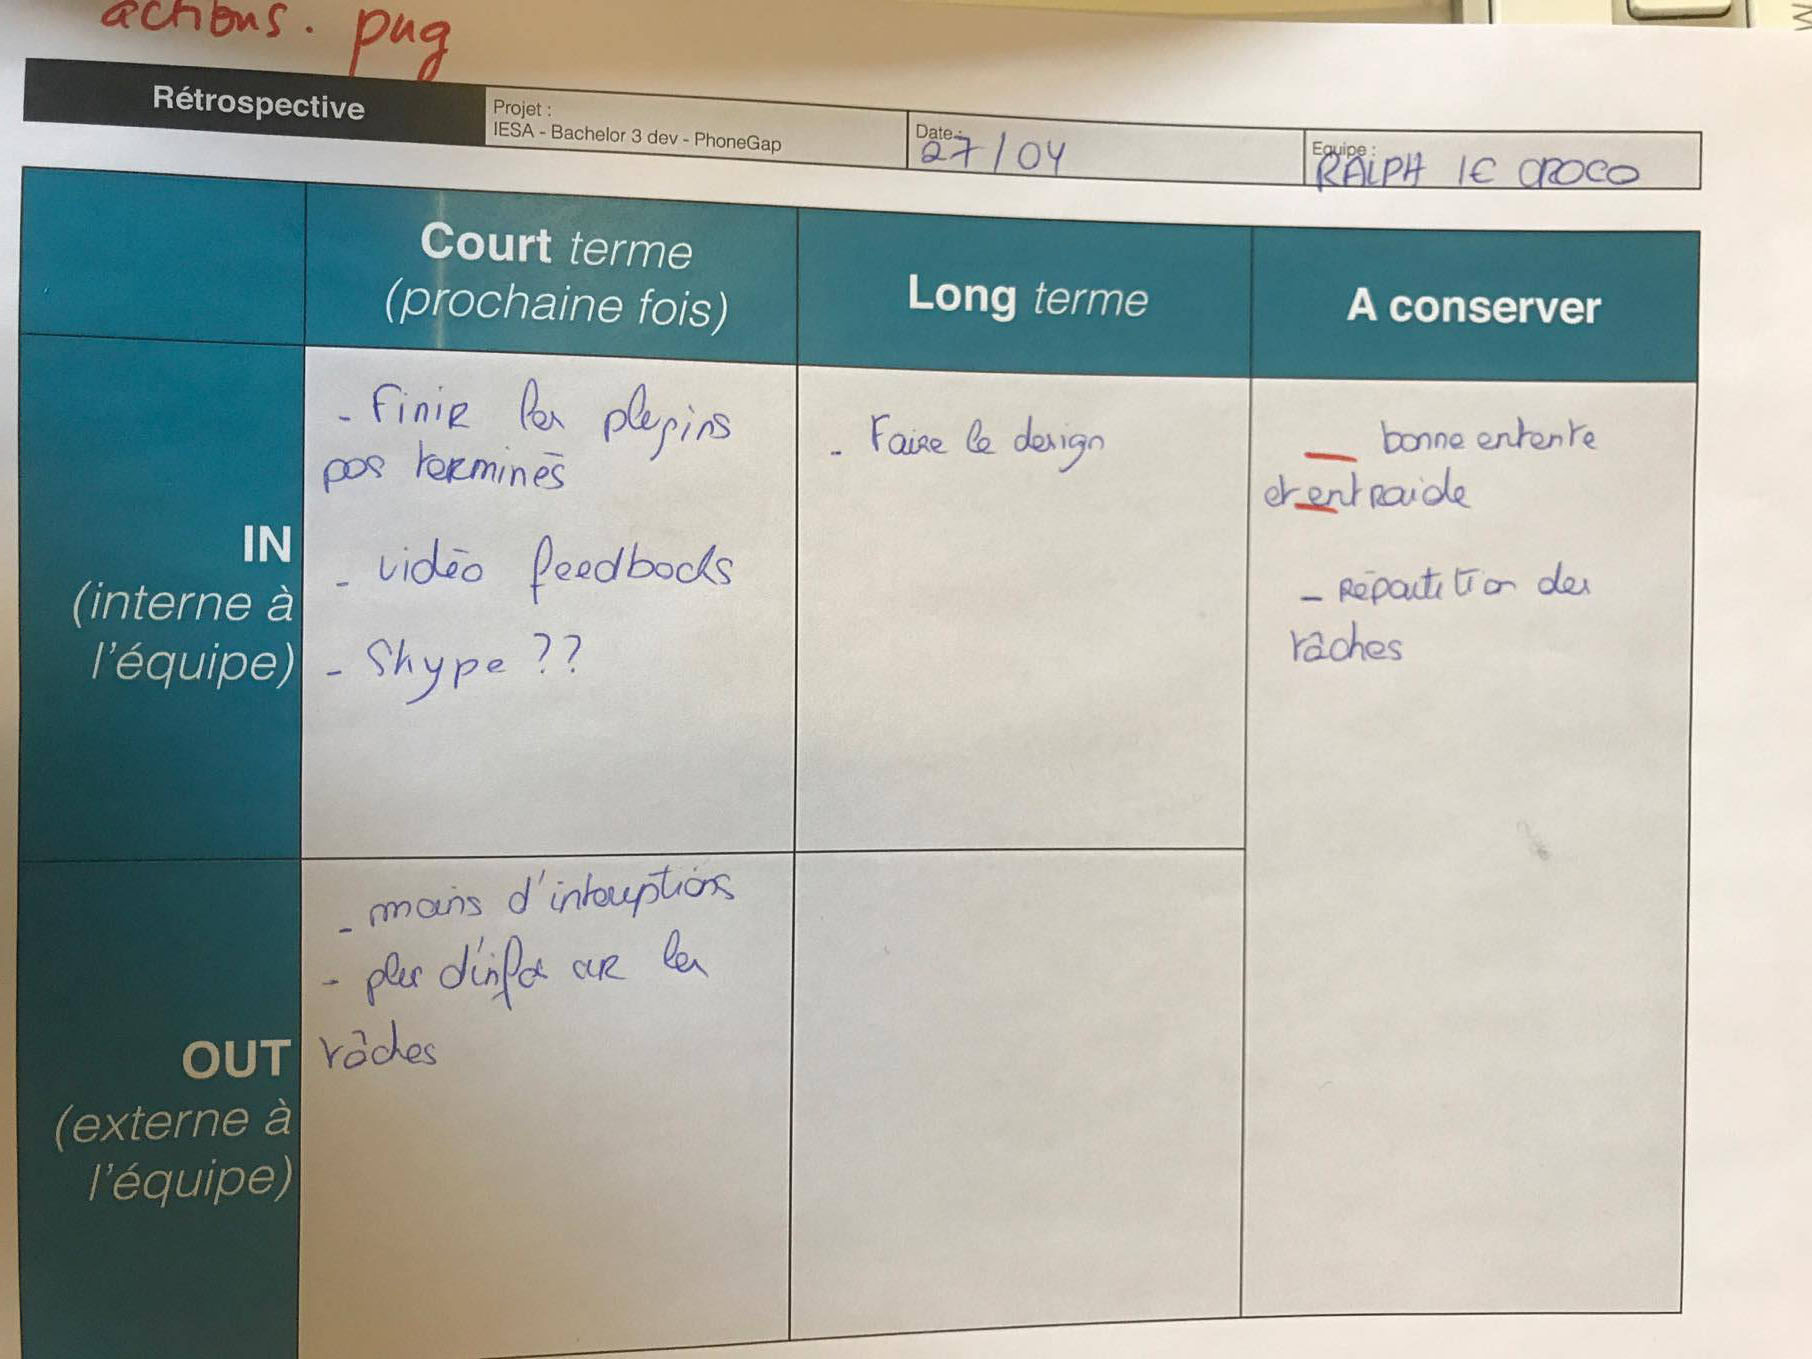 actions. png
Rétrospective
Projet :
IESA - Bachelor 3 dev - PhoneGap
Date :
27/04
Equipe :
RALPH lE CROCO
Court terme
(prochaine fois)
Long terme
A conserver
IN
(interne à
l'équipe)
- Finir les plugins
pas terminés
- vidéo feedbacks
- Skype ??
- Faire le design
- bonne entente
et entraide
- Répartition des
tâches
OUT
(externe à
l'équipe)
- moins d'interuptions
- plus d'infos sur les
tâches